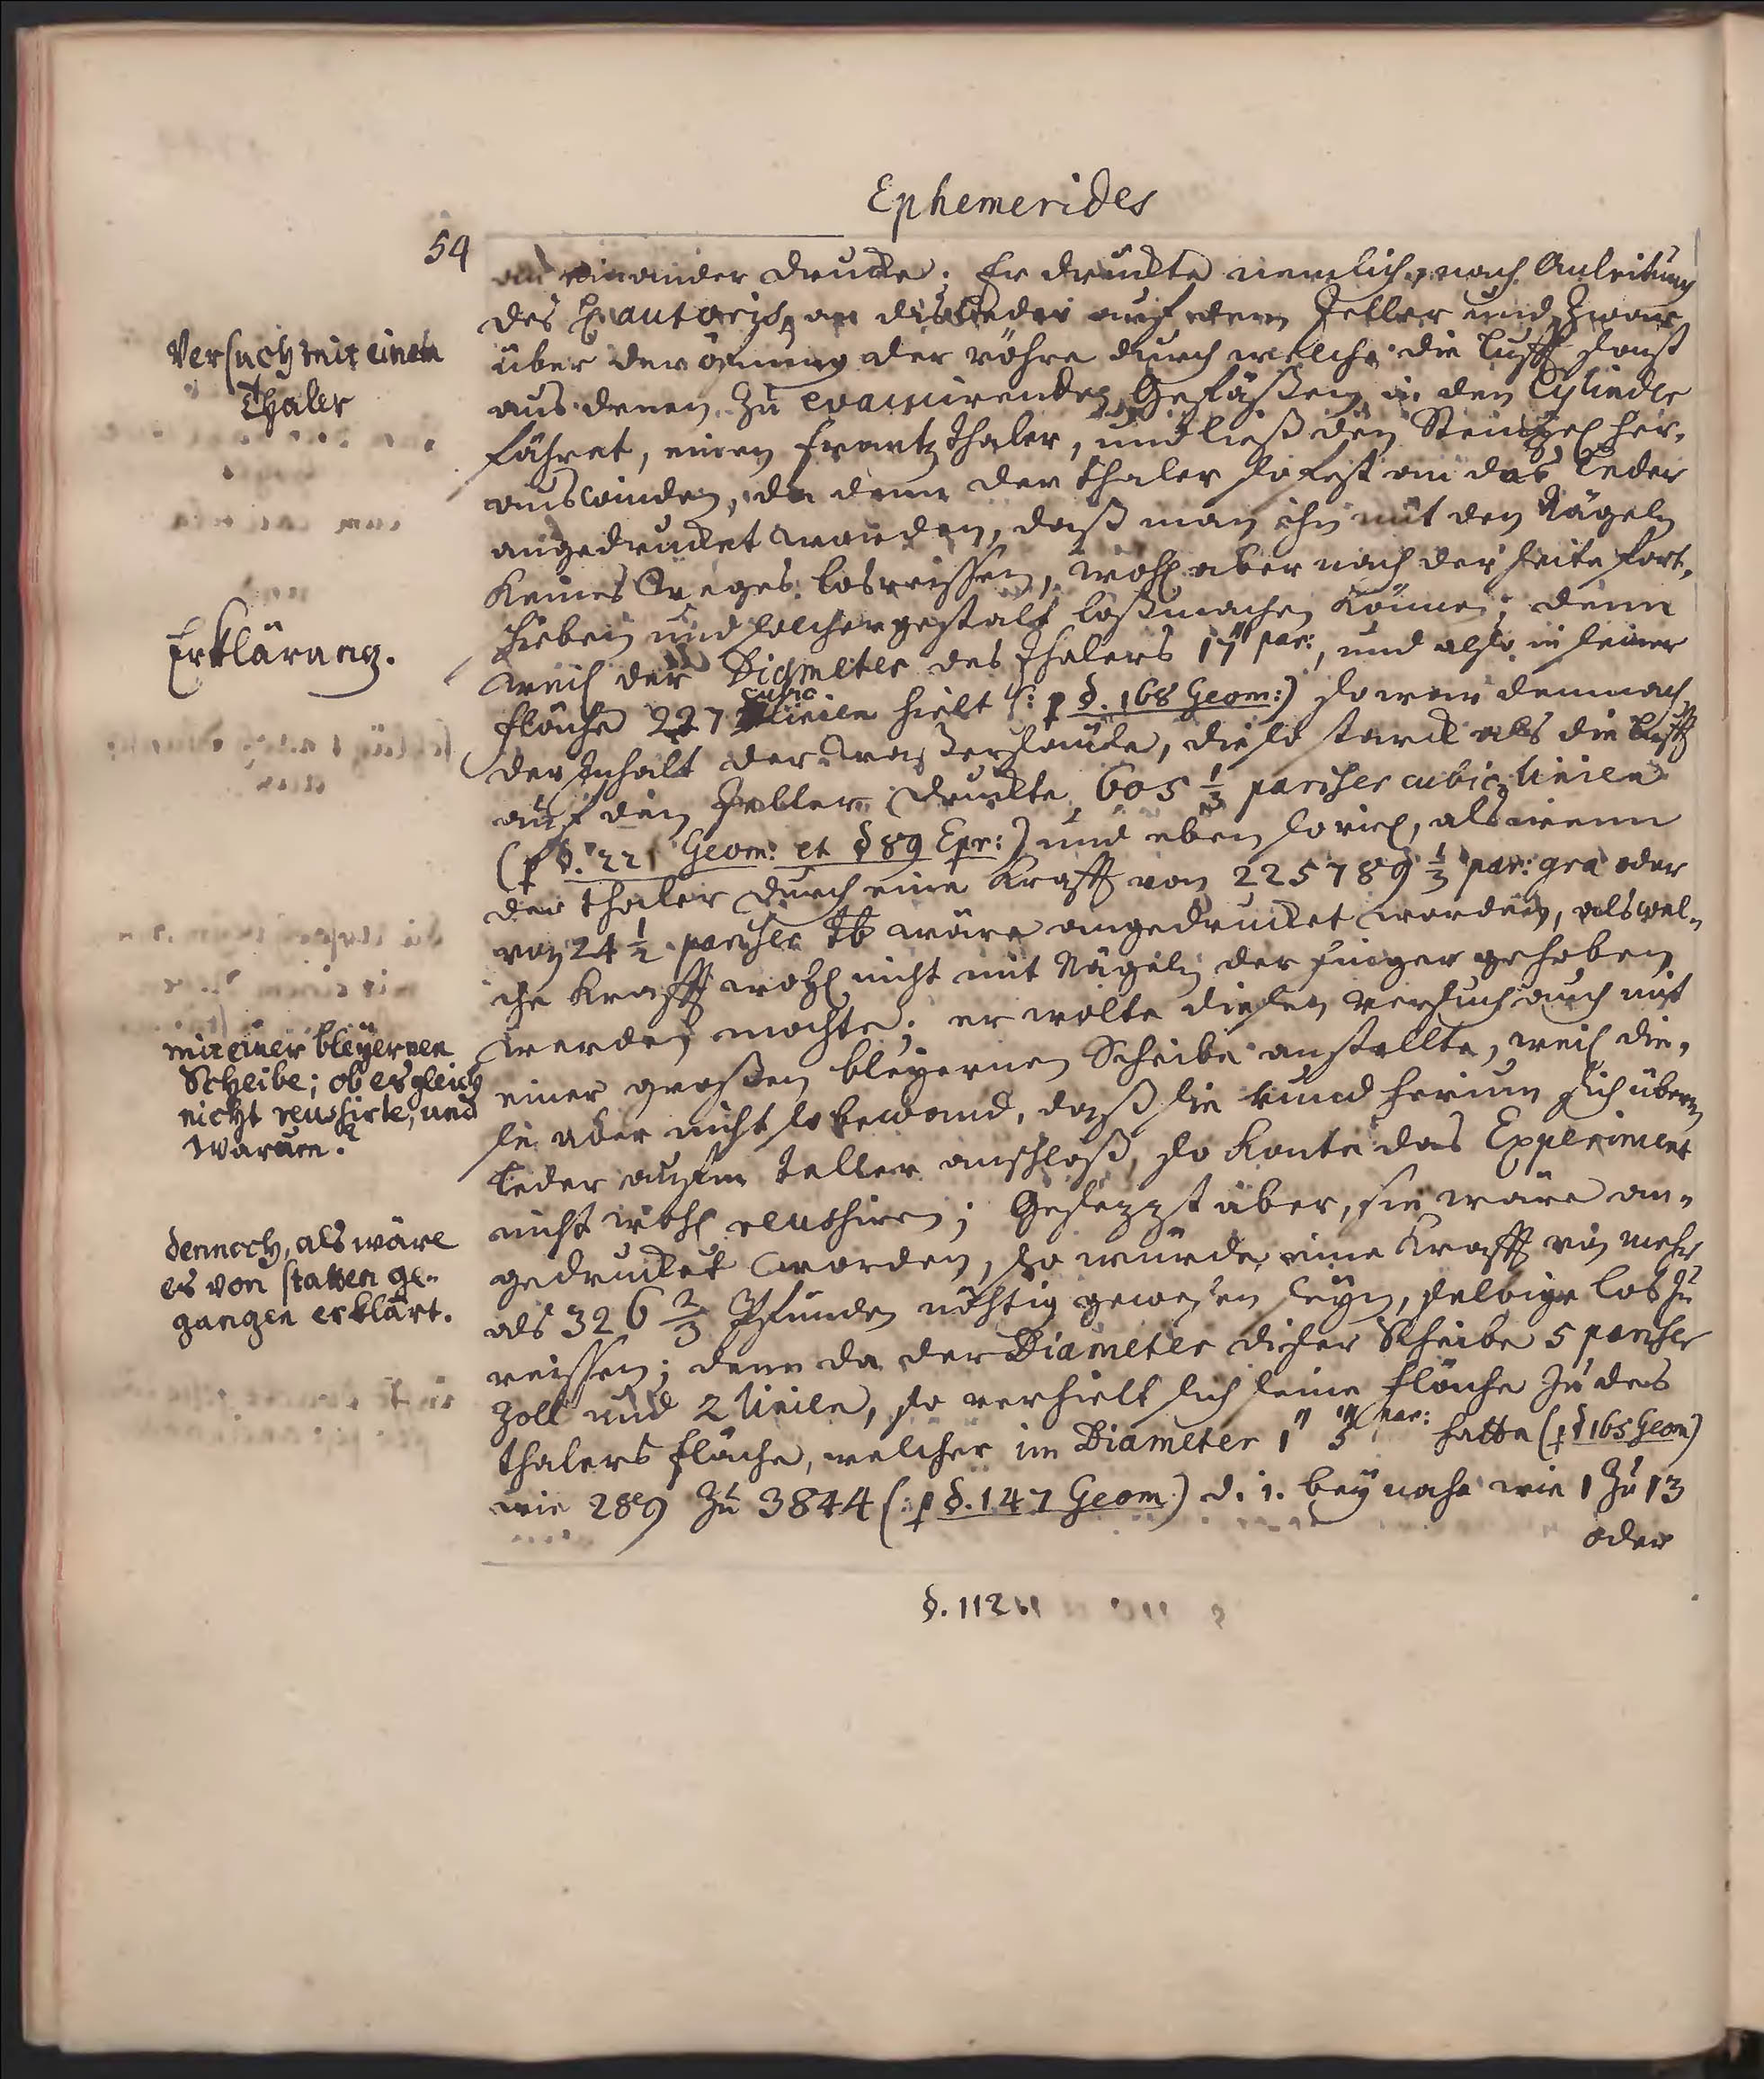 Ephemerides
54
an einander druckte; Er druckte nemlich, nach Anleitung
des H. autoris, an das Leder auf dem Teller und zwar
über der öfnung der röhre durch welche die Lufft sonst
aus denen zu evacuirenden Gefäßen in den Cylinder
fähret, einen frantz thaler, und ließ den Stempel her-
auswinden, da denn der thaler so fest an das Leder
angedrucket worden, daß man ihn mit den Nägeln
keines Weges losreissen, wohl aber nach der seite fort-
schieben und solchergestalt loßmachen können; denn
weil der Diameter des thalers 17''' par:, und also in seiner
fläche 227 linien hielt (: p §. 168 Geom:) so war demnach
der Inhalt der Waßersäule, die so starck als die Lufft
auf den Teller druckte, 605 1/3 pariser cubic linien
(p §. 221 Geom: et §89 Epr:) und eben soviel, als wenn
der thaler durch eine Krafft von 225789 1/3 par: gra oder
von 24 1/2 pariser ℔ wäre angedrucket worden, als wel-
che Krafft wohl nicht mit Nägeln der finger gehoben
werden mochte; er wolte diesen versuch auch mit
einer großen bleyernen Scheibe anstellte, weil die-
se aber nicht so bewand, daß sie rund herum sich überm
Leder aufm Teller anschloß, so konte das Experiment
nicht wohl reussiren; Gesezzt aber, sie wäre an-
gedrucket worden, so würde eine Krafft von mehr
als 326 2/3 Pfunden nöhtig gewesen seyn, selbige los zu
reissen; denn da der Diameter dieser Scheibe 5 pariser
Zoll und 2 linien, so verhielt sich seine fläche zu des
thalers fläche, welcher im Diameter 1'' 5''' par: hatte (p §165 Geom)
wie 289 zu 3844 (: p §. 147 Geom) d. i. bey nahe wie 1 zu 13
oder
§. 112
Versuch mit einem
Thaler
Erklärung.
mit einer bleyernen
Scheibe; ob es gleich
nicht reussirte, und
warum?
dennoch, als wäre
es von statten ge-
gangen erklärt.